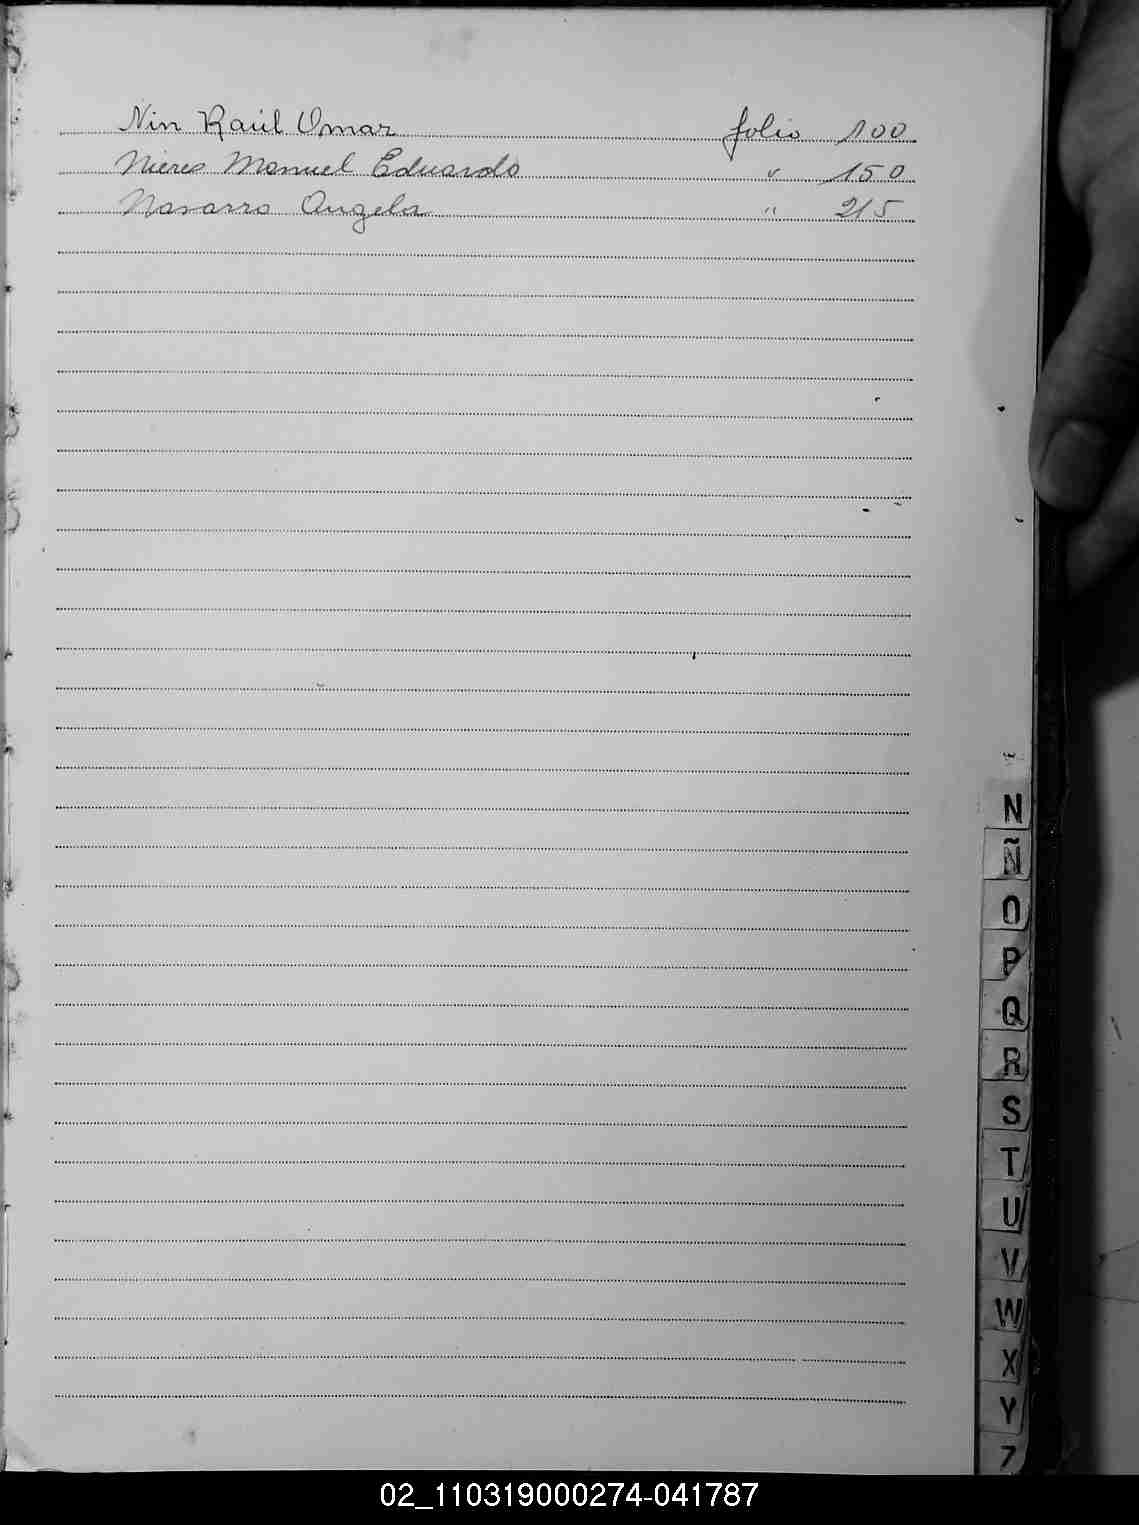 Nin Raúl Omar folio 100
Nieres Manuel Eduardo " 150
Navarro Angela " 215
N
Ñ
O
P
Q
R
S
T
U
V
W
X
Y
Z
02_110319000274-041787